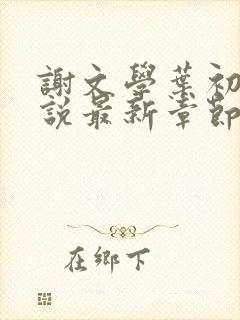 謝文學葉初
說最新章節
在鄉下